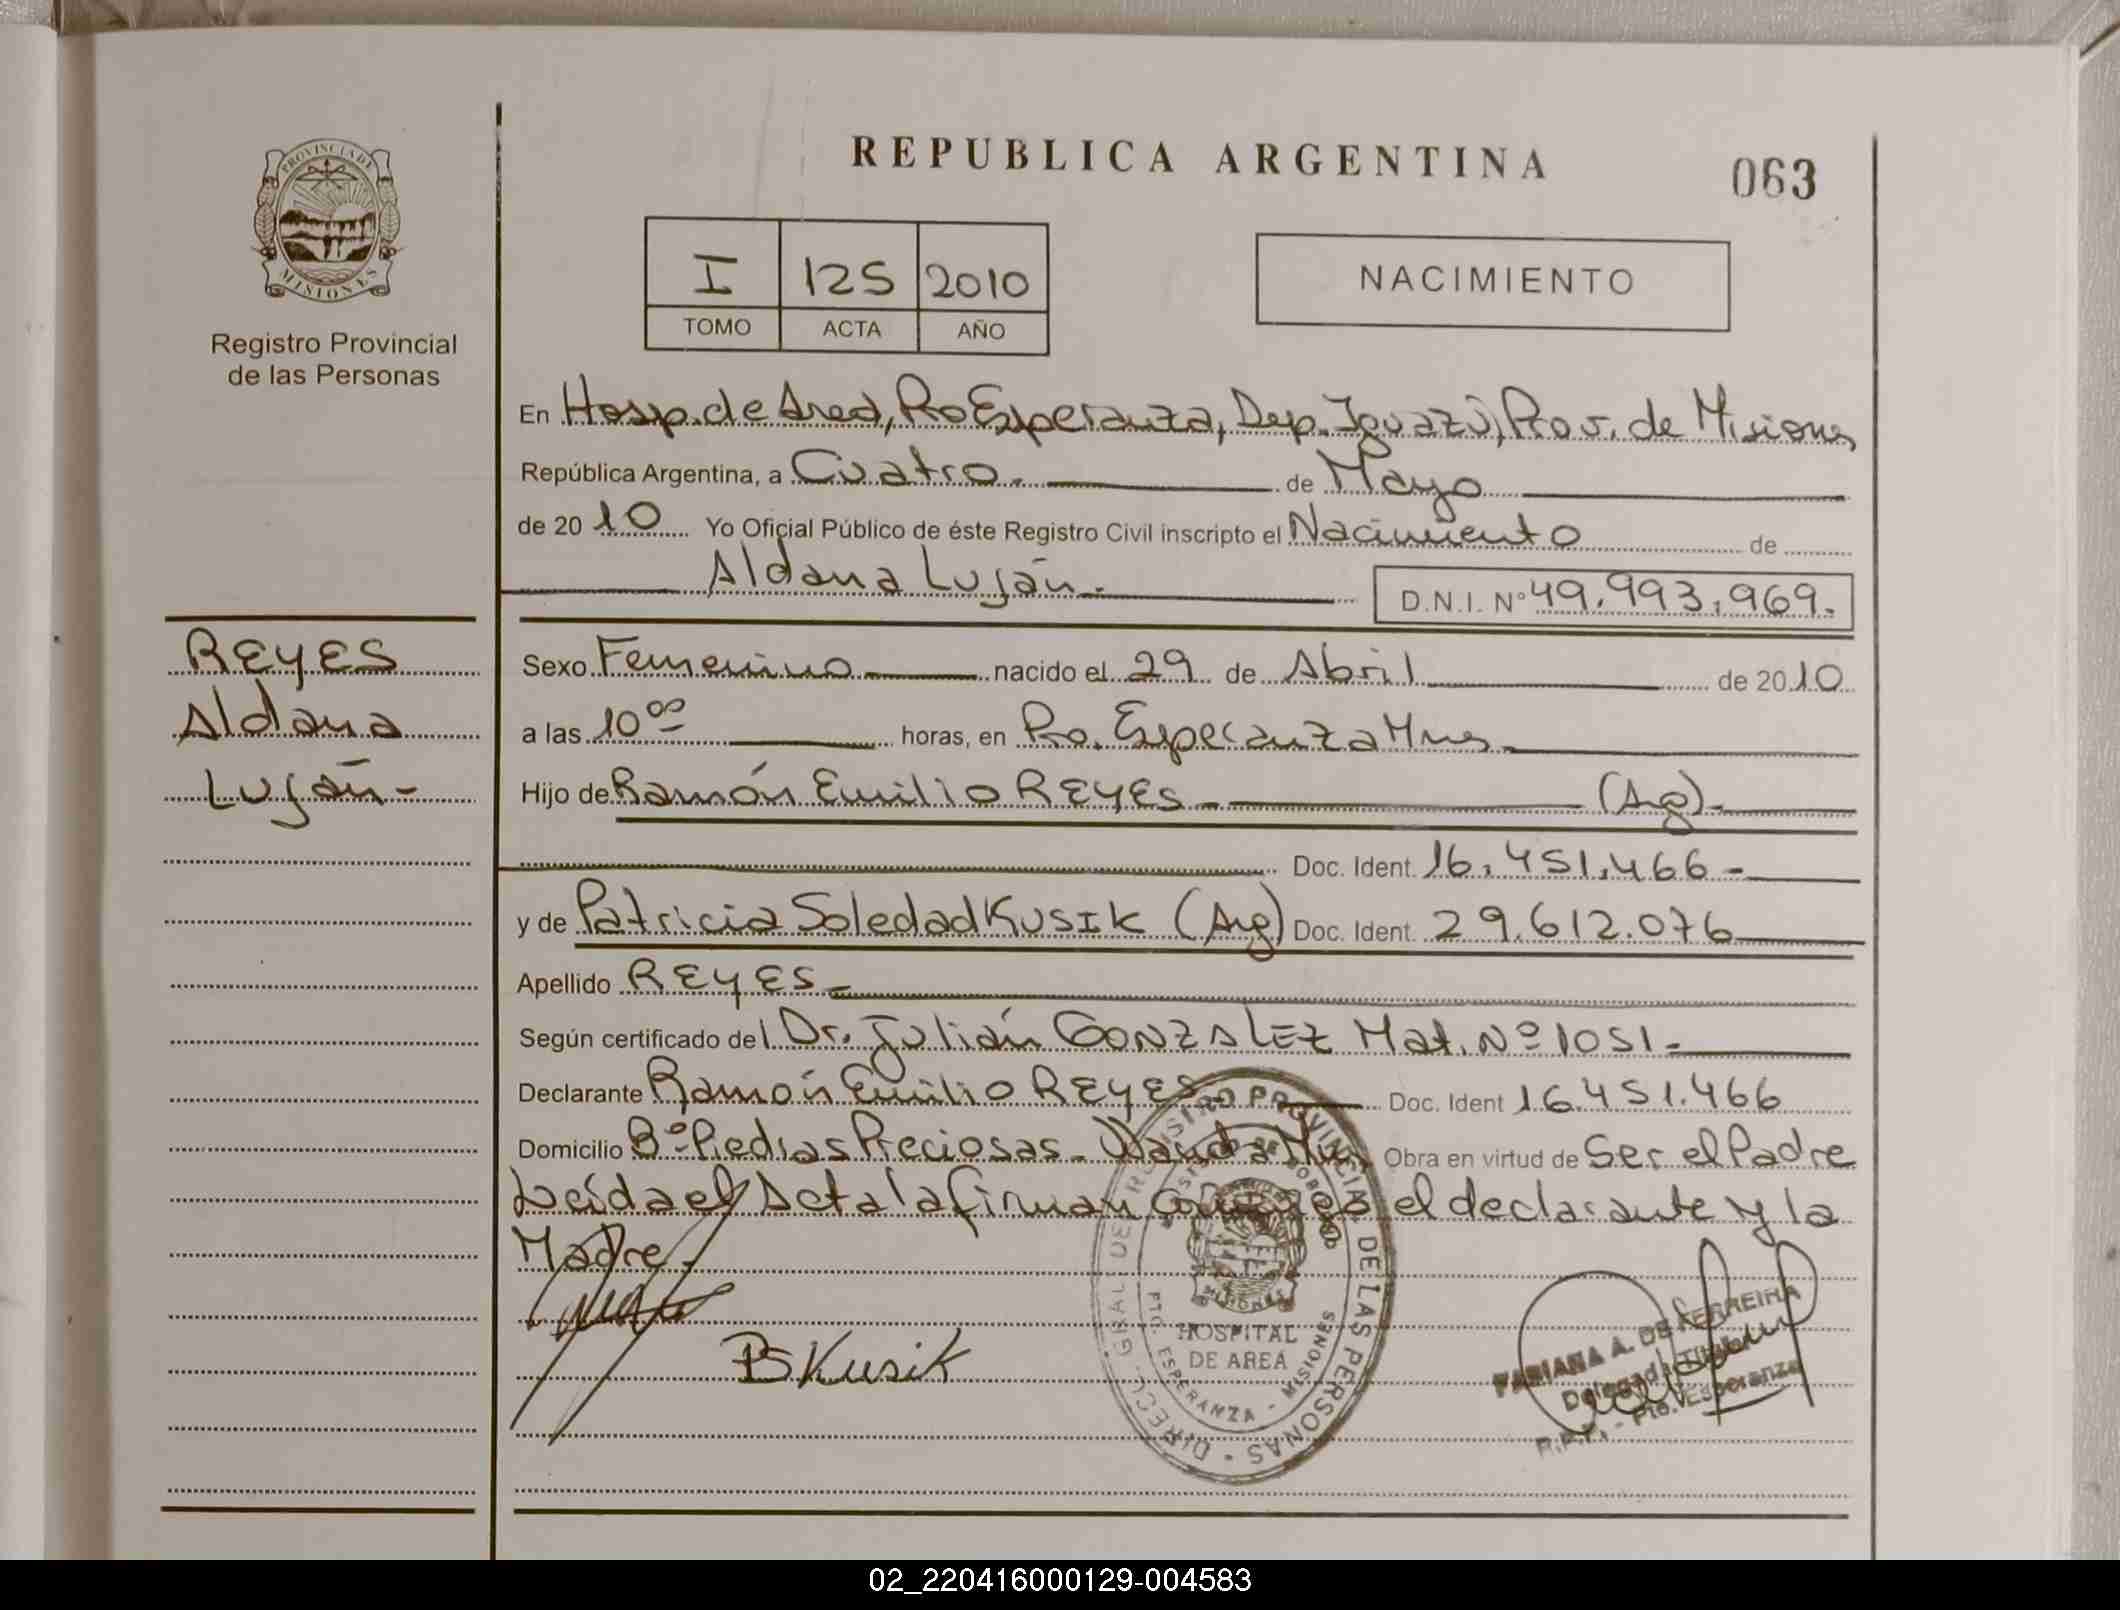 PROVINCIA DE
MISIONES
Registro Provincial
de las Personas
REYES
Aldana
Luján-
REPUBLICA ARGENTINA
063
I 125 2010
TOMO ACTA AÑO
NACIMIENTO
En Hosp. de Area, Pto Esperanza, Dep. Iguazú, Prov. de Misiones
República Argentina, a Cuatro. de Mayo
de 2010 Yo Oficial Público de éste Registro Civil inscripto el Nacimiento de
Aldana Luján.- D.N.I. Nº 49.993.969.
Sexo Femenino nacido el 29 de Abril de 2010
a las 10 00 horas, en Pto. Esperanza Mnes.
Hijo de Ramón Emilio REYES - (Arg)-
Doc. Ident. 16.451.466-
y de Patricia Soledad KUSIK (Arg) Doc. Ident. 29.612.076
Apellido REYES-
Según certificado del Dr. Julián GONZALEZ Mat. Nº 1051-
Declarante Ramón Emilio REYES Doc. Ident 16.451.466
Domicilio Bº Piedras Preciosas - Wanda Mnes Obra en virtud de Ser el Padre
Leída el Acta la firman conmigo el declarante y la
Madre.
PS Kusik
DIRECC. GRAL DEL REGISTRO PROVINCIAL DE LAS PERSONAS
MISIONES
HOSPITAL
DE AREA
PTO. ESPERANZA - MISIONES
FABIANA A. DE FERREIRA
Delegada Titular
R.P.P. - Pto. Esperanza
02_220416000129-004583